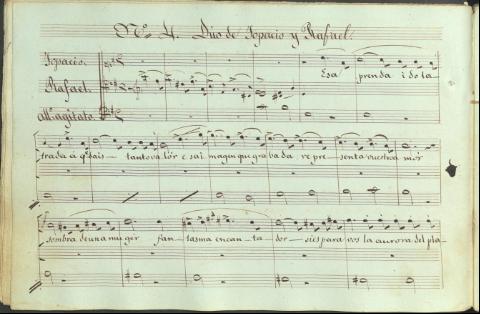 Nº 4. Dúo de Topacio y Rafael.
Topacio.
Rafael.
All.º agitato.
Esa prenda
trada á q.e dais tanto valor e sa i magen que gra ba da re pre senta vuestra
sombra de una mu ger fan tasma en can ta dor si es para vos la aurora del pla